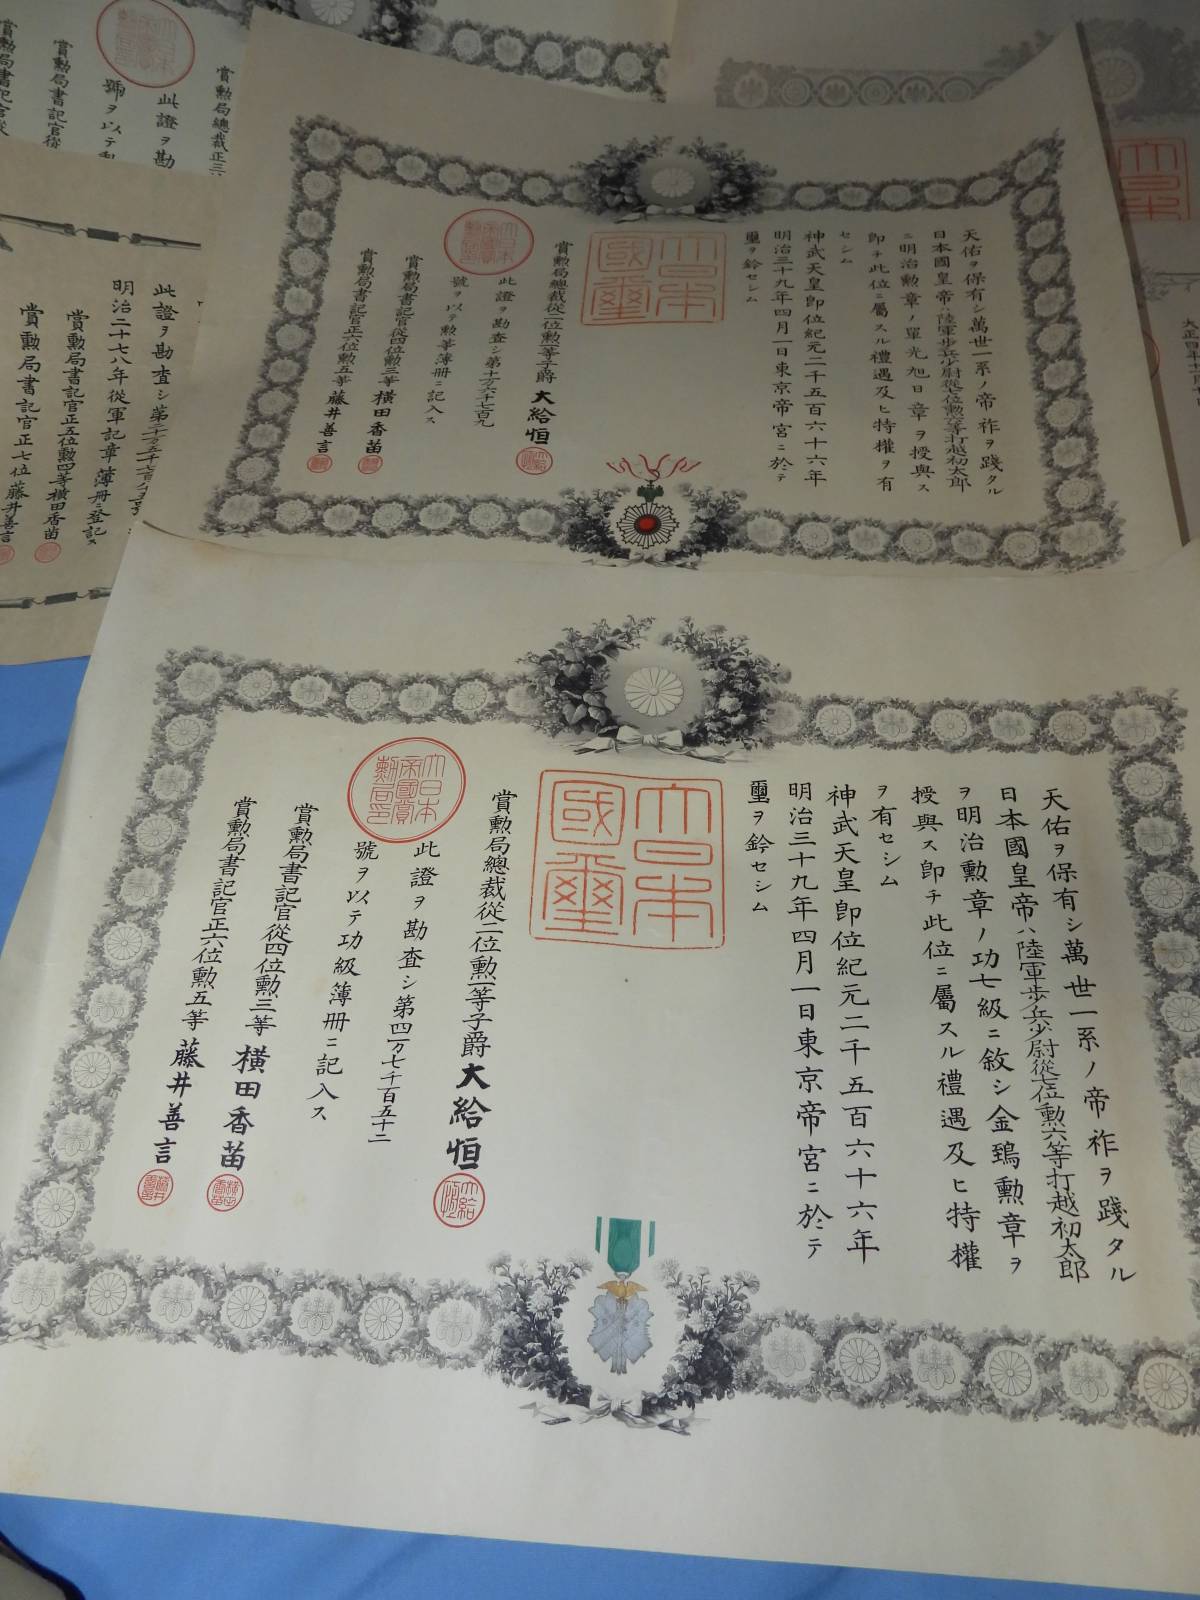 天佑ヲ保有シ萬世一系ノ帝祚ヲ踐タル
日本國皇帝ハ陸軍步兵少尉從七位勲六等打越初太郎
ヲ明治勲章ノ功七級ニ敘シ金鵄勲章ヲ
授與ス即チ此位ニ屬スル禮遇及ヒ特權
ヲ有セシム
神武天皇即位紀元二千五百六十六年
明治三十九年四月一日東京帝宮ニ於テ
璽ヲ鈐セシム
大日本
國璽
賞勲局總裁從二位勲一等子爵大給恒
此證ヲ勘査シ第四万七千百五十二
號ヲ以テ功級簿冊ニ記入ス
賞勲局書記官從四位勲三等橫田香苗
賞勲局書記官正六位勲五等藤井善言
大日本
帝國賞
勲局印
天佑ヲ保有シ萬世一系ノ帝祚ヲ踐タル
日本國皇帝ハ陸軍步兵少尉從七位勲七等打越初太郎
ニ明治勲章ノ單光旭日章ヲ授與ス
即チ此位ニ屬スル禮遇及ヒ特權ヲ有
セシム
神武天皇即位紀元二千五百六十六年
明治三十九年四月一日東京帝宮ニ於テ
璽ヲ鈐セシム
大日本
國璽
賞勲局總裁從二位勲一等子爵大給恒
此證ヲ勘査シ第十万六千七百九
號ヲ以テ勲等簿冊ニ記入ス
賞勲局書記官從四位勲三等橫田香苗
賞勲局書記官正六位勲五等藤井善言
此證ヲ勘査シ第二十万五千七百八五号
明治二十七八年從軍記章簿冊ニ登記ス
賞勲局書記官正五位勲四等橫田香苗
賞勲局書記官正七位藤井善言
賞勲局總裁正三
此證ヲ勘
號ヲ以テ
賞勲局書記官從
賞勲局書記官從
大日本
大正四年十一月十日